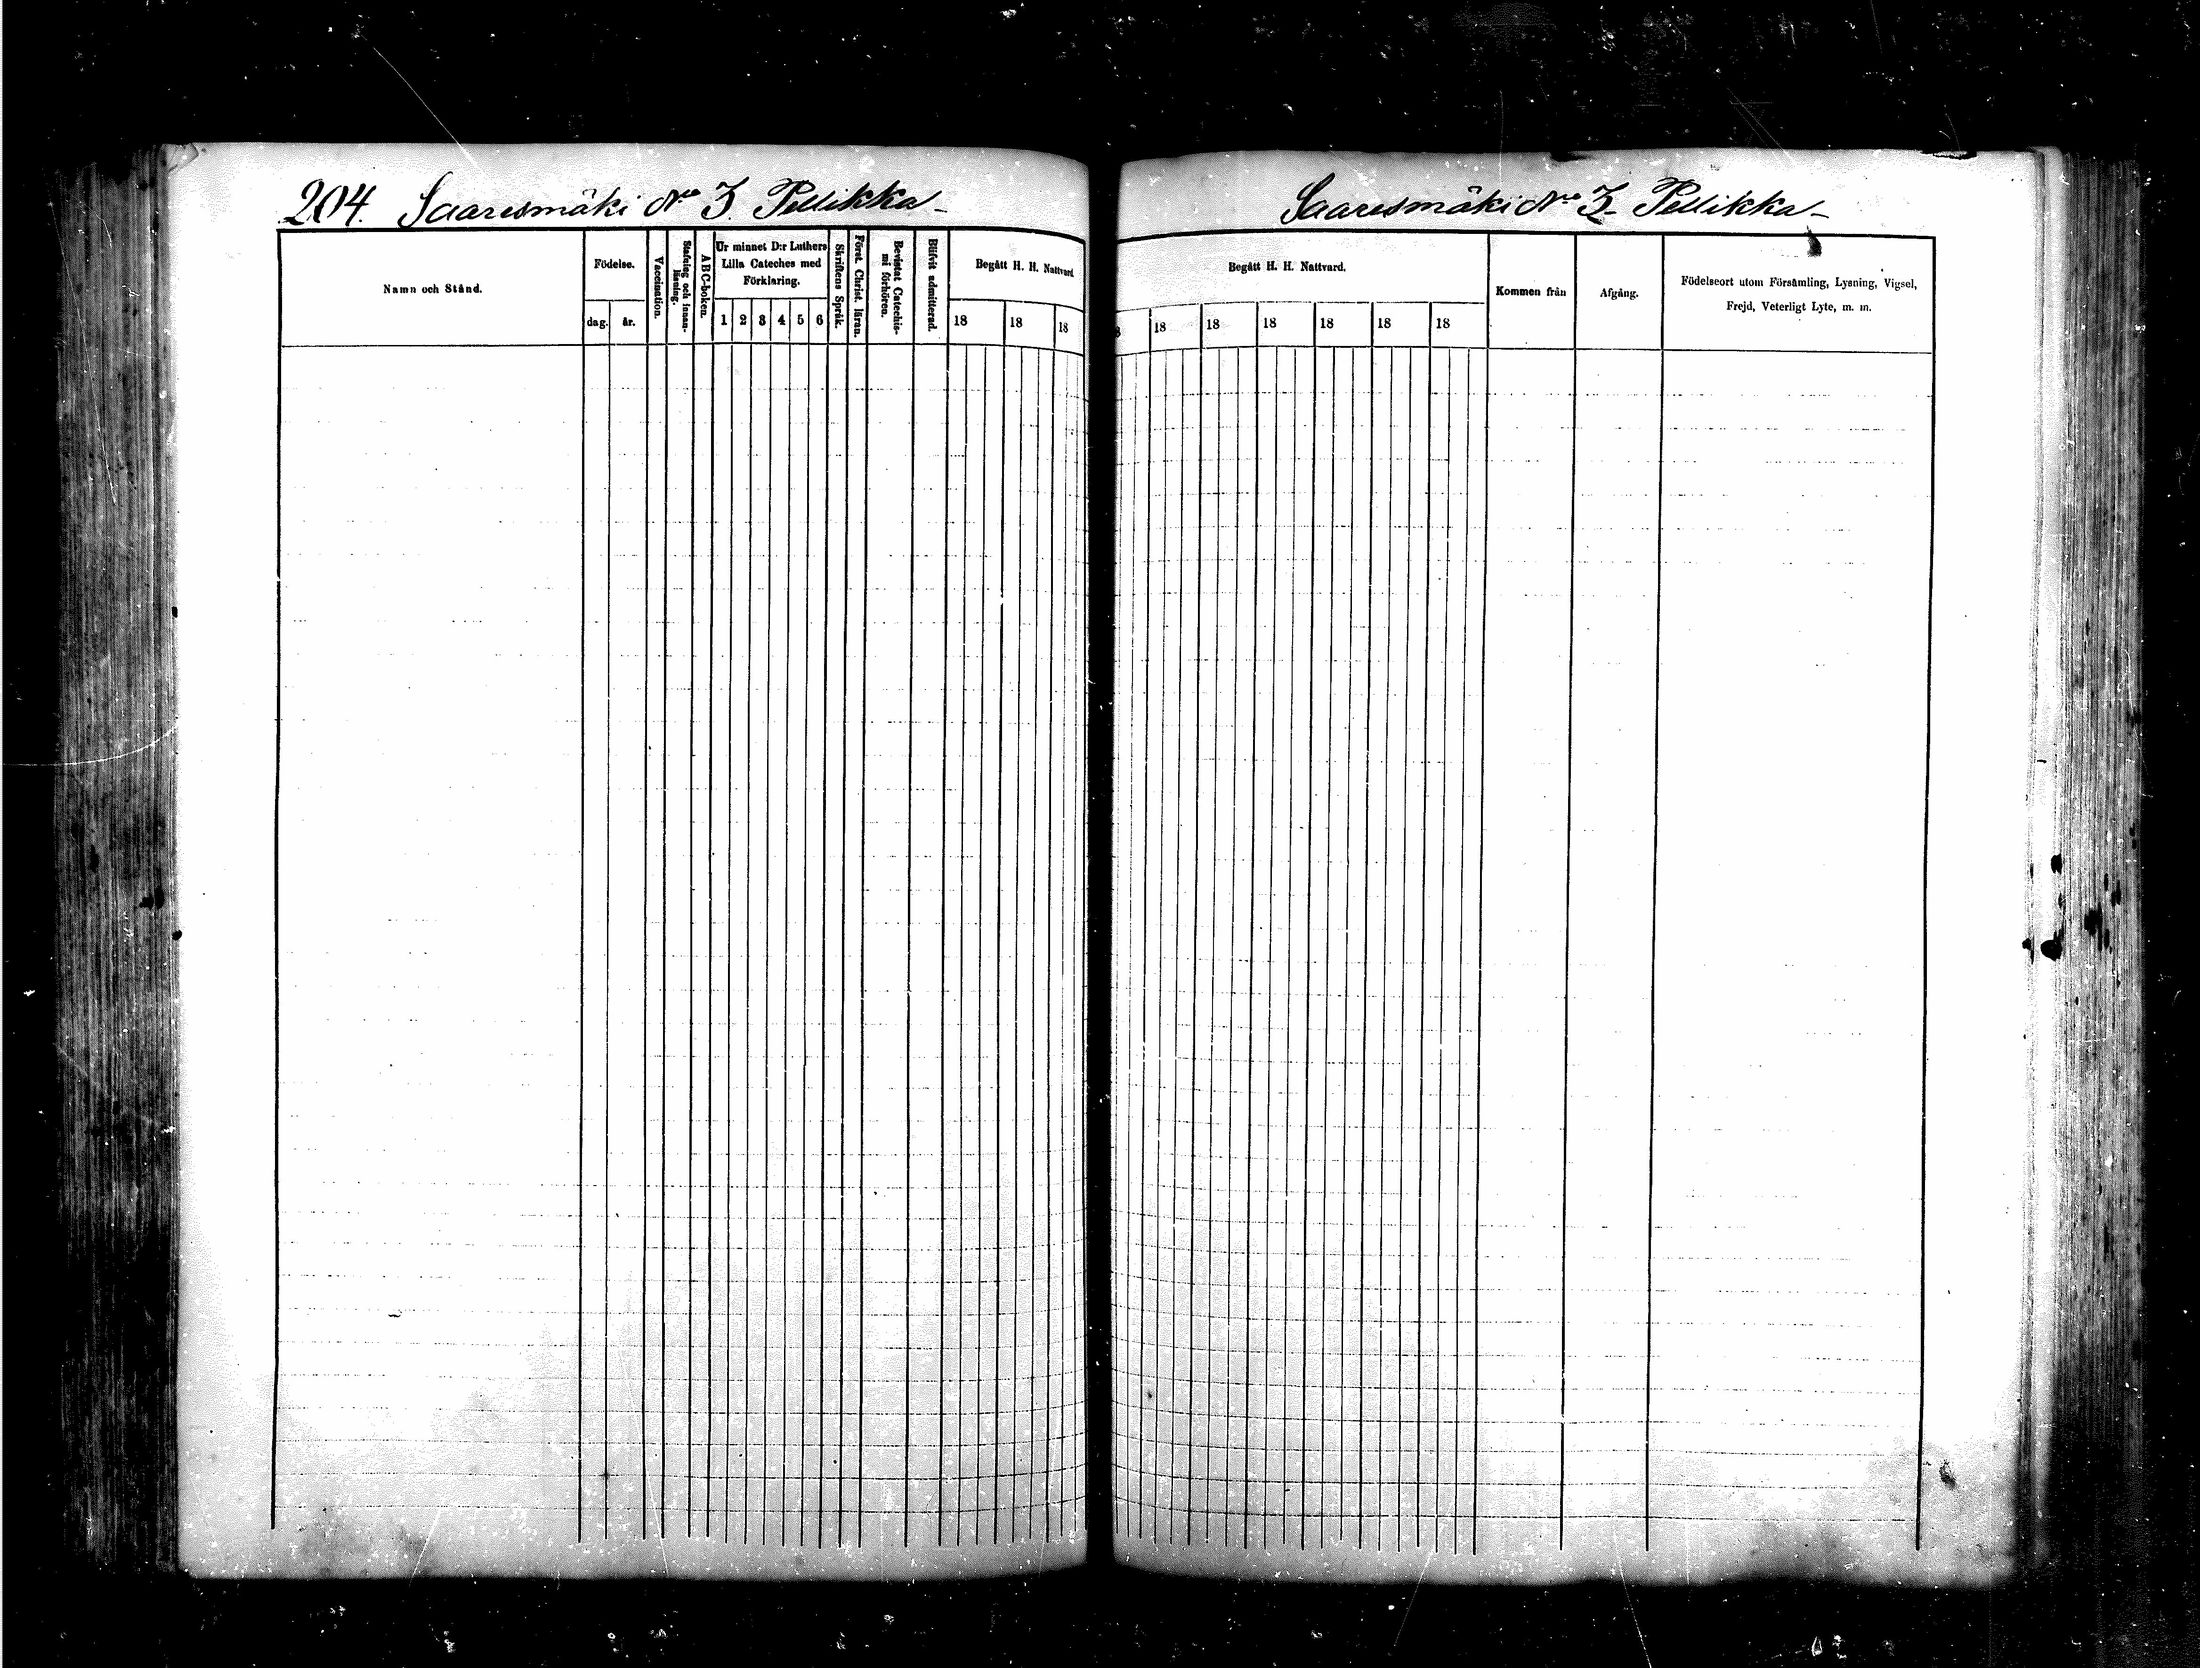 204. Saaresmäki No 3. Pellikka
Namn och Stånd.
Födelse.
dag. år.
Vaccination.
Stafning och innan-
läsning.
ABC-boken.
Ur minnet D:r Luthers
Lilla Cateches med
Förklaring.
1 2 3 4 5 6
Skriftens Språk.
Först. Christ. läran.
Bevistat Catechis-
mi förhören.
Blifvit admitterad.
Begått H. H. Nattvard
18 18 18
Saaresmäki No 3 Pellikka
Begått H. H. Nattvard.
8 18 18 18 18 18 18
Kommen från
Afgång.
Födelseort utom Församling, Lysning, Vigsel,
Frejd, Veterligt Lyte, m. m.